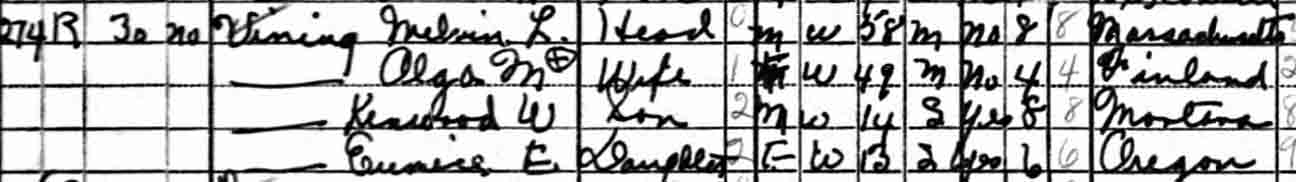 274 R 30 no Vining Melvin L. Head 0 M W 58 M No 8 8 Massachusetts
—— Olga M ⊕ Wife 1 F W 49 M No 4 4 Finland 2
—— Kenwood W Son 2 M W 14 S Yes 8 8 Montana 8
—— Eunice E. Daughter 2 F W 13 S Yes 6 6 Oregon 9